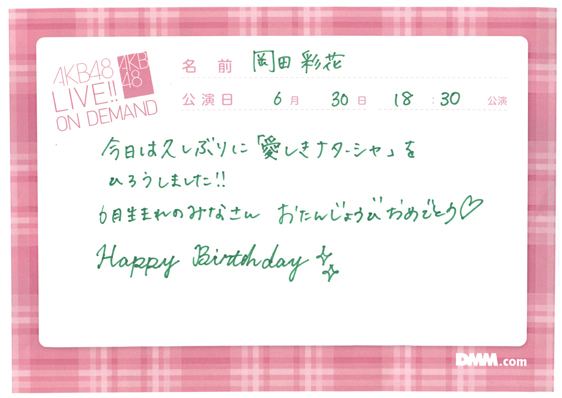 AKB48
LIVE!!
ON DEMAND
AKB
48
名前 岡田彩花
公演日 6月 30日 18:30 公演
今日は久しぶりに「愛しきナターシャ」を
ひろうしました!!
6月生まれのみなさん おたんじょうびおめでとう♡
Happy Birthday
DMM.com